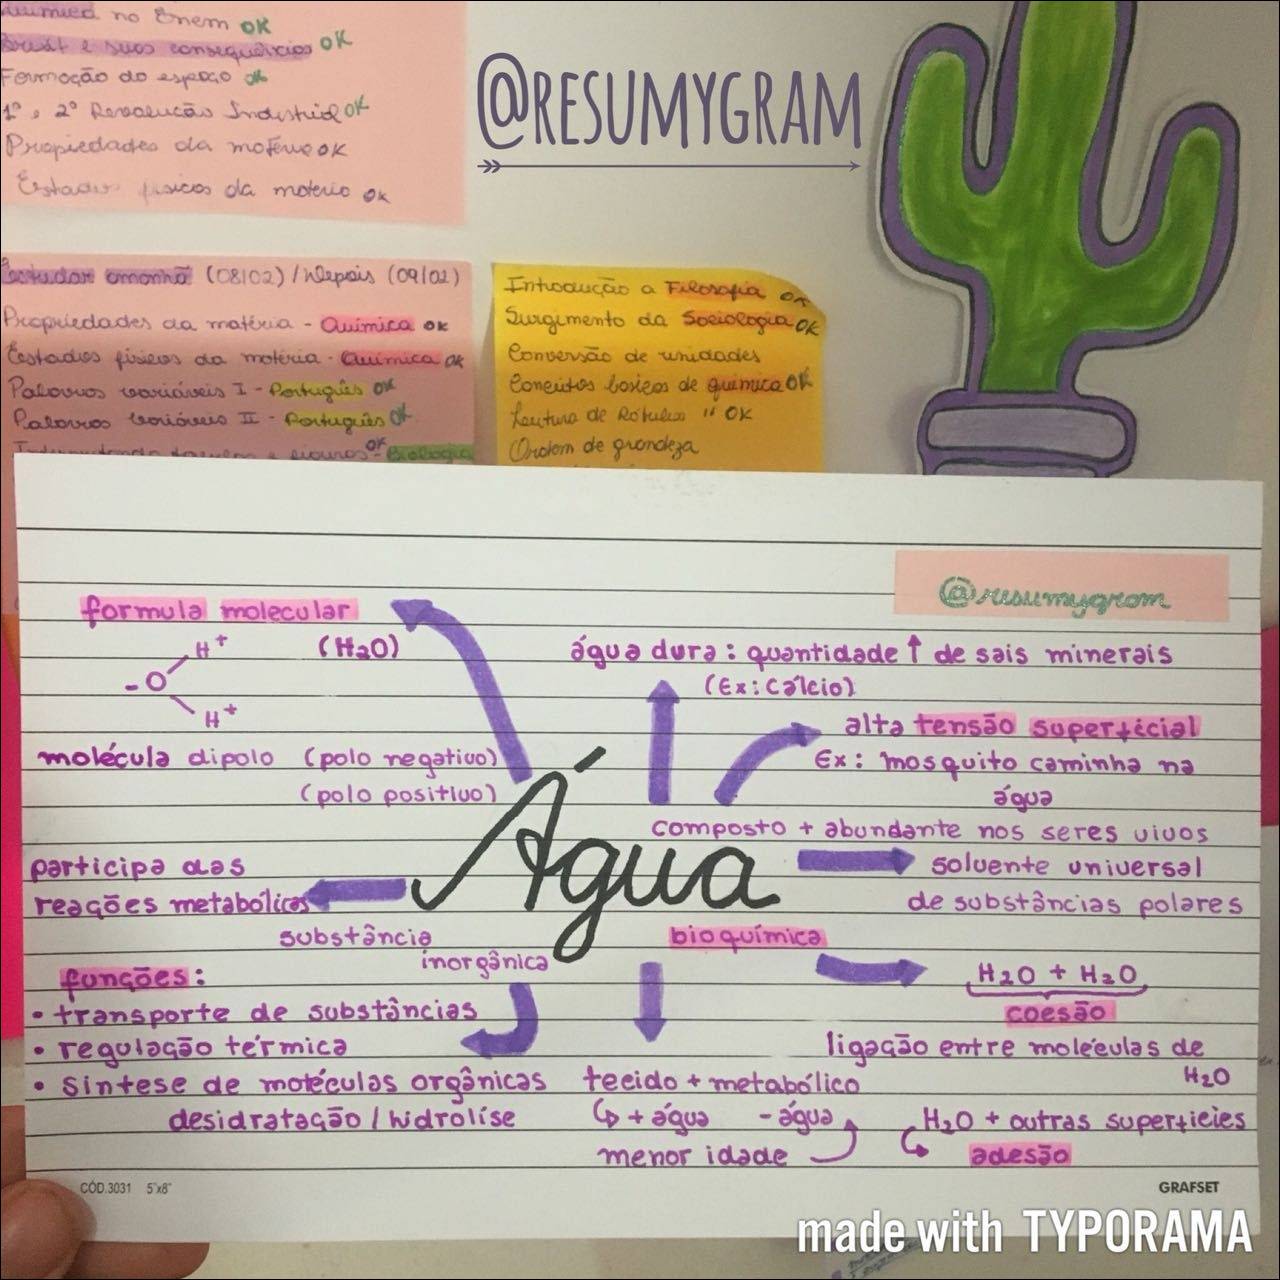 Química no Enem OK
Brexit e suas consequências OK
Formação do espaço ok
1ª e 2ª Revolução Industrial OK
Propriedades da matéria OK
Estados físicos da matéria OK
@RESUMYGRAM
Estudar amanhã (08/02) / Depois (09/02)
Propriedades da matéria - Química OK
Estados físicos da matéria - Química OK
Palavras variáveis I - Português OK
Palavras variáveis II - Português OK
OK - Biologia
Introdução a Filosofia OK
Surgimento da Sociologia OK
Conversão de unidades
Conceitos basicos de química OK
Leitura de Rótulos " OK
Ordem de grandeza
@resumygram
formula molecular
(H2O)
H+
- O
H+
molécula dipolo (polo negativo)
(polo positivo)
água dura: quantidade ↑ de sais minerais
(Ex: Cálcio)
alta tensão superficial
Ex: mosquito caminha na
água
Água
composto + abundante nos seres vivos
solvente universal
de substâncias polares
participa das
reações metabólicas
substância
inorgânica
funções:
• transporte de substâncias
• regulação térmica
• síntese de moléculas orgânicas
desidratação / hidrolise
bioquímica
tecido + metabólico
↳ + água - água
menor idade
H2O + H2O
coesão
ligação entre moléculas de
H2O
H2O + outras superficies
adesão
CÓD.3031 5"x8"
GRAFSET
made with TYPORAMA